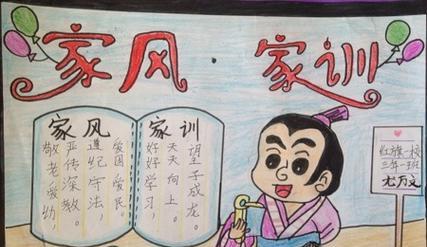 家风·家训
家风
敬老爱幼,
严传深教。
遵纪守法,
爱国爱民。
家训
好好学习,
天天向上。
望子成龙。
红旗一校
三年一班